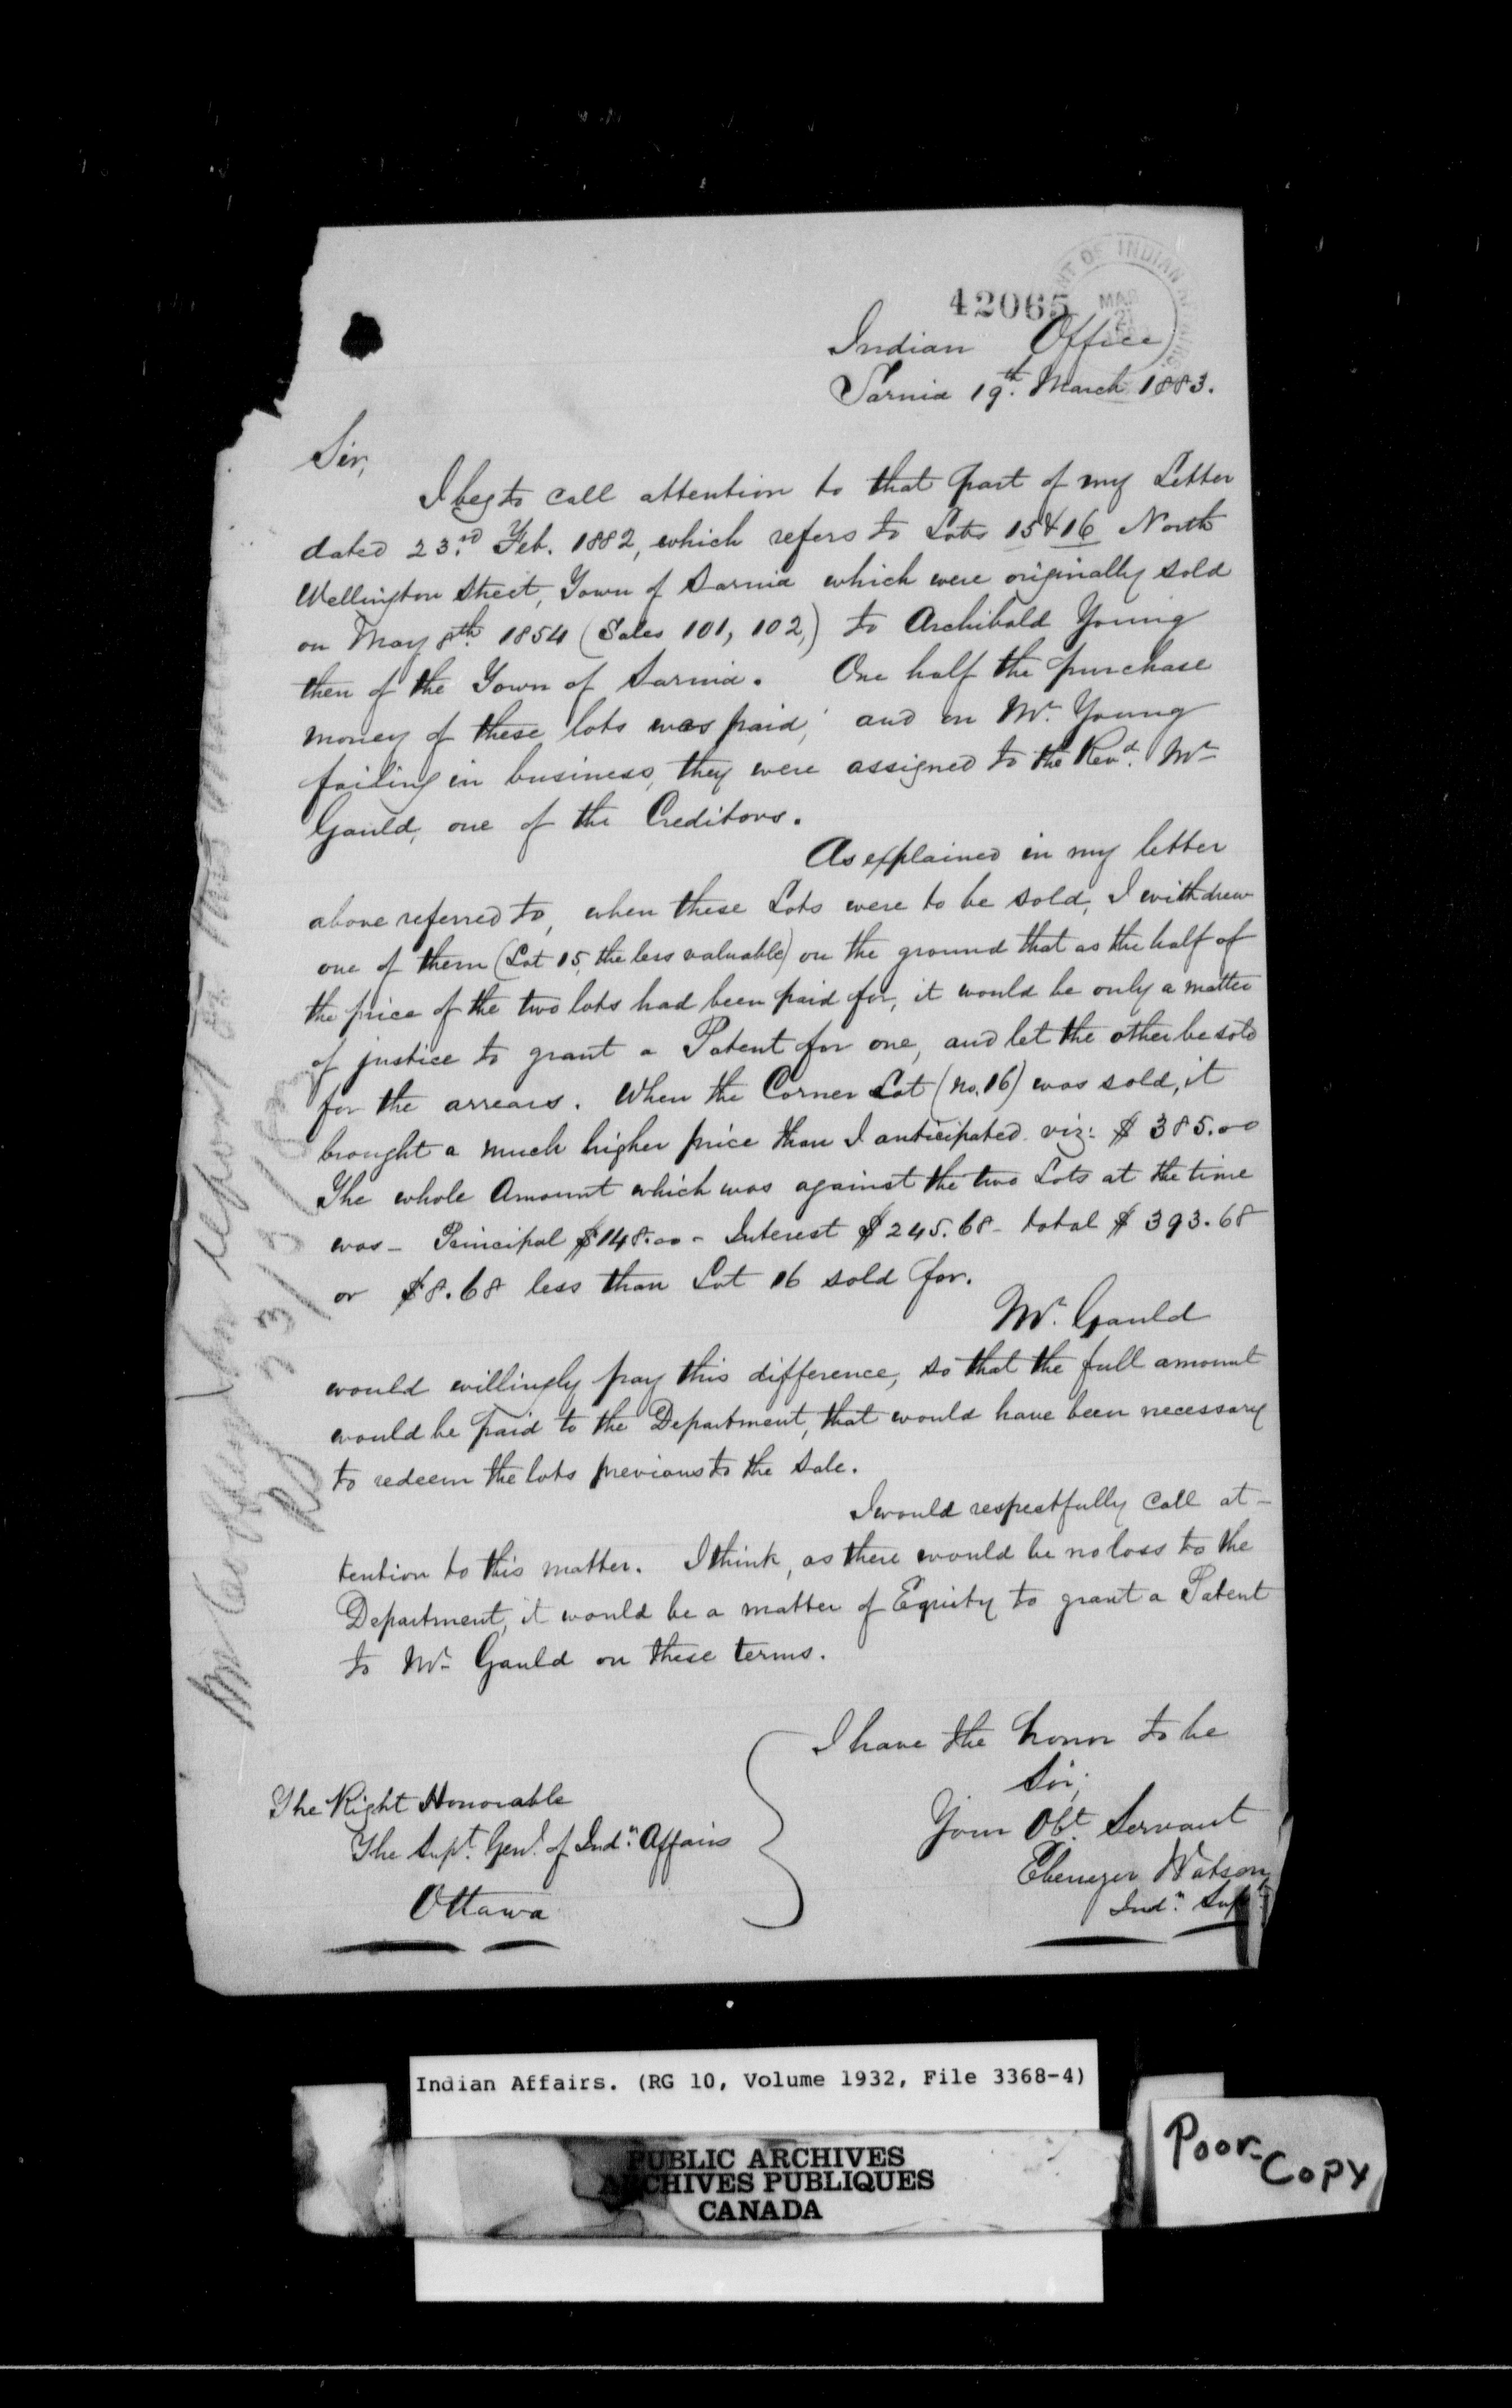 42065
DEPARTMENT OF INDIAN AFFAIRS
MAR
21
Indian Office
Sarnia 19th. March 1883.
Sir,
I beg to call attention to that part of my Letter
dated 23.rd Feb. 1882, which refers to Lots 15 & 16 North
Wellington Street, Town of Sarnia which were originally sold
on May 8th. 1854 (Sales 101, 102,) to Archibald Young
then of the Town of Sarnia. One half the purchase
money of these lots was paid, and on Mr. Young
failing in business, they were assigned to the Revd. Mr
Gauld, one of the Creditors.
As explained in my letter
above referred to, when these Lots were to be sold, I withdrew
one of them (Lot 15, the less valuable) on the ground that as the half of
the price of the two lots had been paid for, it would be only a matter
of justice to grant a Patent for one, and let the other be sold
for the arrears. When the Corner Lot (no. 16) was sold, it
brought a much higher price than I anticipated viz: $385.00
The whole Amount which was against the two Lots at the time
was - Principal $148.00 - Interest $245.68 - total $393.68
or $8.68 less than Lot 16 sold for.
Mr. Gauld
would willingly pay this difference, so that the full amount
would be paid to the Department, that would have been necessary
to redeem the lots previous to the sale.
I would respectfully call at-
tention to this matter. I think, as there would be no loss to the
Department, it would be a matter of Equity to grant a Patent
to Mr. Gauld on these terms.
I have the honor to be
Sir,
Your Obt. Servant
Ebenezer Watson
Indn. Supt.
The Right Honorable
The Supt. Genl. of Indn. Affairs
Ottawa
Mr for report
23/3/83
Indian Affairs. (RG 10, Volume 1932, File 3368-4)
PUBLIC ARCHIVES
ARCHIVES PUBLIQUES
CANADA
Poor-
Copy